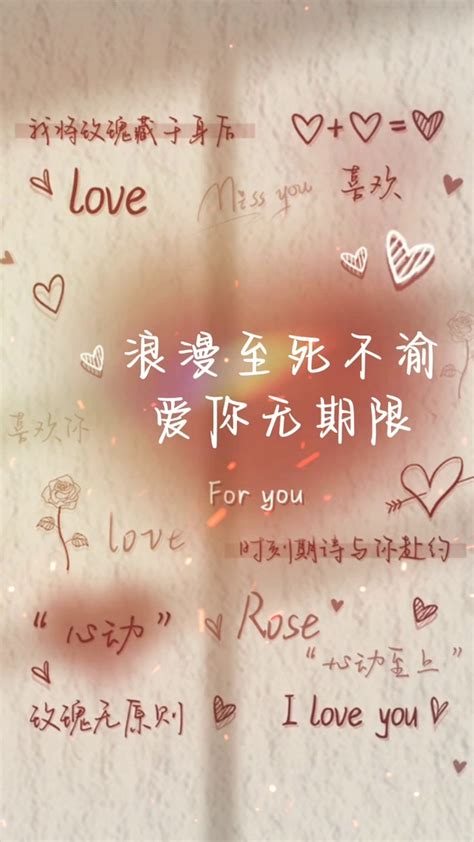 我将玫瑰藏于身后
♡+♡=♡
love
Miss you
喜欢
浪漫至死不渝
爱你无期限
喜欢你
For you
love
时刻期诗与你赴约
"心动"
Rose
"心动至上"
玫瑰无原则
I love you